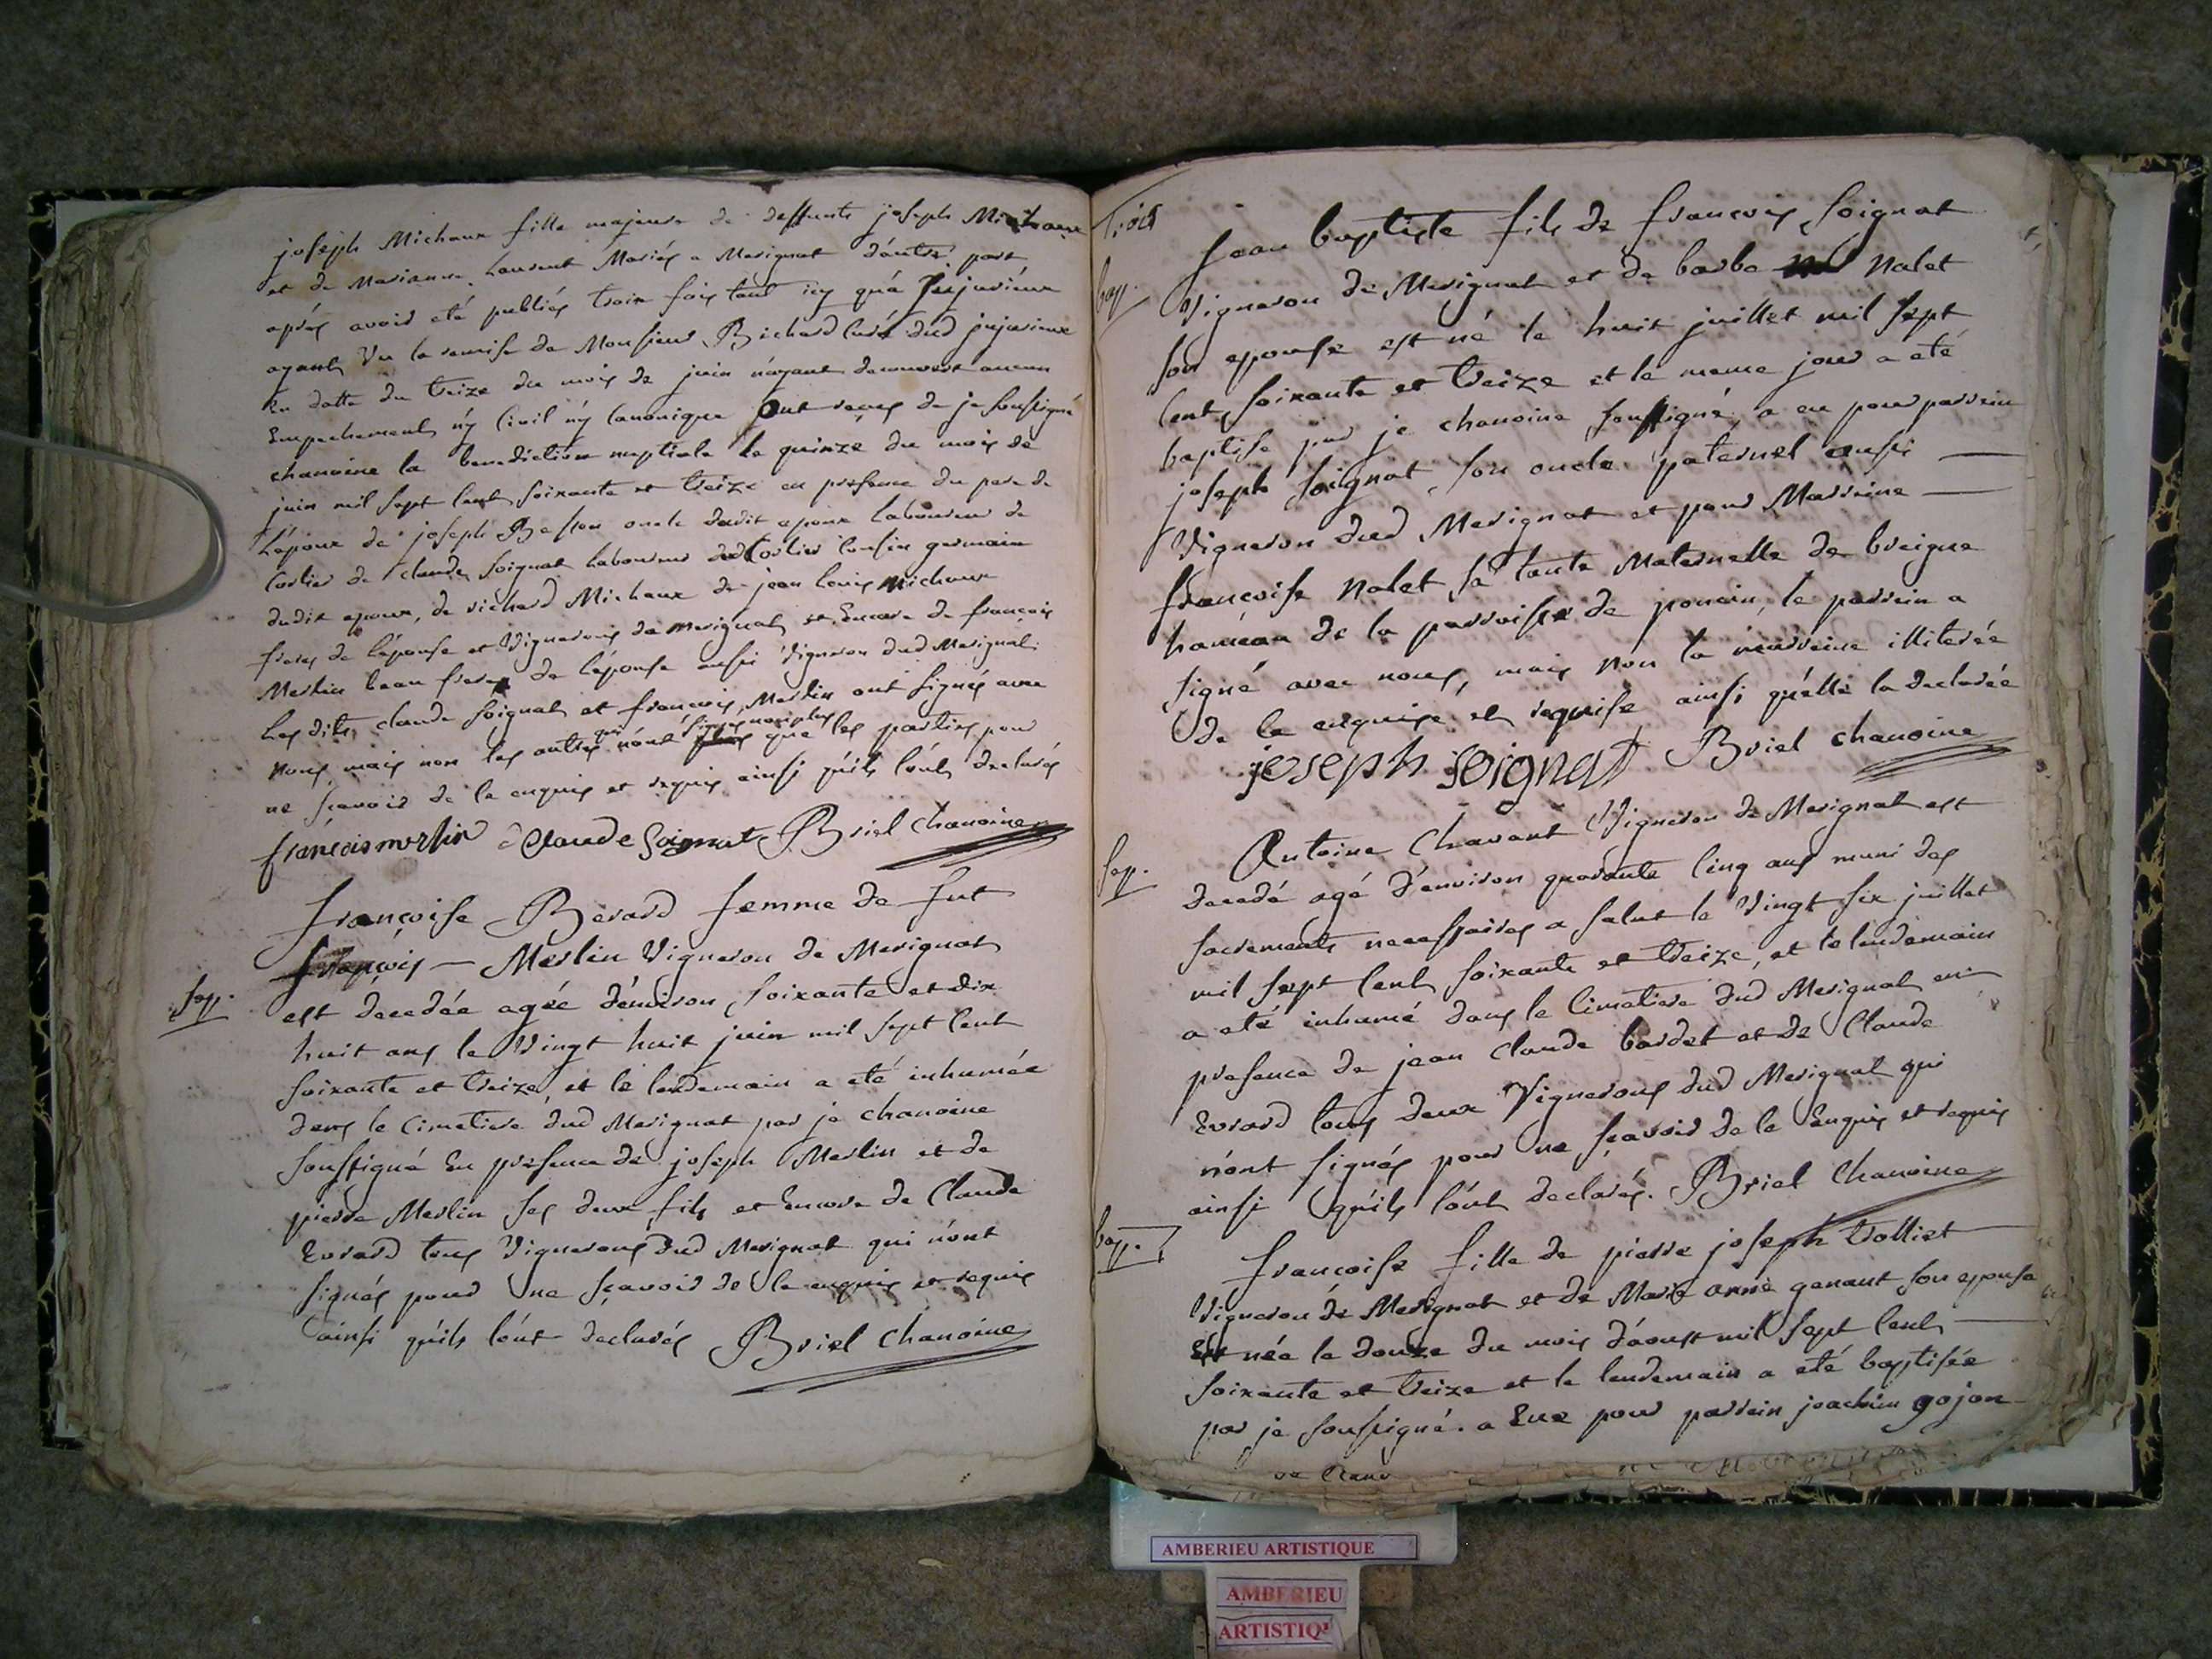 joseph Michaux fille majeure de deffunts joseph Michaux
et de Marianne Laurent Mariés a Merignat d'autre part
aprés avoir eté publiés trois fois tant icy qu'a jujurieux
ayants Vu la remise de Monsieur Bichard Curé dud jujurieux
En datte du treize du mois de juin n'ayant decouvert aucun
Empechements n'y Civil n'y Canonique Ont reçus de je soussigné
chanoine la benediction nuptiale le quinze du mois de
juin mil sept cent soixante et treize en presence du pere de
L'époux de joseph Besson oncle dudit epoux Laboureur de
Corlier de claude Soignat Laboureur dud Corlier Cousin germain
dudit epoux, de richard Michaux de jean Louis Michaux
freres de l'épouse et Vignerons de merignat et Encore de françois
Merlin beau frere de l'épouse aussi Vigneron dud Merignat
Les dits claude Soignat et françois Merlin ont signés avec
nous mais non les autres qui n'ont signés non plus que les parties pour
ne sçavoir de le enquis et requis ainsi qu'ils l'ont declarés
françois merlin Claude Soignat Briel chanoine
françoise Berard femme de fut
françois — Merlin Vigneron de Merignat
sep.
est decedée agée d'environ soixante et dix
huit ans le Vingt huit juin mil sept cent
soixante et treize, et le lendemain a eté inhumée
dans le Cimetiere dud Merignat par je chanoine
soussigné En presence de joseph Merlin et de
pierre Merlin ses deux fils et Encore de Claude
Evrard tous Vignerons dud Merignat qui n'ont
signés pour ne sçavoir de le enquis et requis
ainsi qu'ils l'ont declarés Briel chanoine
Trois
Jean baptiste fils de françois Soignat
bap.
Vigneron de Merignat et de barbe Nalet
son epouse est né le huit juillet mil sept
cent soixante et treize et le meme jour a eté
baptisé par je chanoine soussigné, a eu pour parrein
joseph Soignat son oncle paternel aussi —
Vigneron dud Merignat et pour Marreine —
françoise Nalet sa tante Maternelle de breigne
hameau de la parroisse de poncin, le parrein a
signé avec nous, mais non la marreine illiterée
de le enquise et requise ainsi qu'elle la declarée
joseph soignat Briel chanoine
sep.
Antoine Chavant Vigneron de Merignat est
decedé agé d'environ quarante cinq ans muni des
sacrements necessaires a salut le Vingt six juillet
mil sept cent soixante et treize, et le lendemain
a eté inhumé dans le Cimetiere dud Merignat en
presence de jean claude bardet et de Claude
Evrard tous deux Vignerons dud Merignat qui
n'ont signés pour ne sçavoir de le Enquis et requis
ainsi qu'ils l'ont declarés. Briel Chanoine
bap.
françoise fille de pierre joseph trolliet
Vigneron de Merignat et de Marie anne genant son epouse
Est née le douze du mois d'aoust mil sept cent —
soixante et treize et le lendemain a eté baptisée
par je soussigné. a Eue pour parrein joachim gojon
AMBERIEU ARTISTIQUE
AMBERIEU
ARTISTIQ